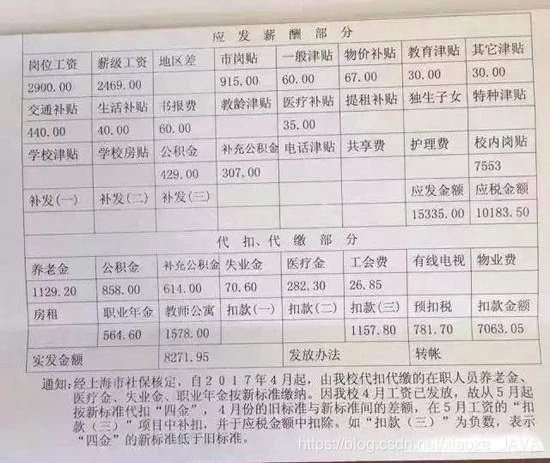 应发薪酬部分
岗位工资 薪级工资 地区差 市岗贴 一般津贴 物价补贴 教育津贴 其它津贴
2900.00 2469.00 915.00 60.00 67.00 30.00 30.00
交通补贴 生活补贴 书报费 教龄津贴 医疗补贴 提租补贴 独生子女 特种津贴
440.00 40.00 60.00 35.00
学校津贴 学校房贴 公积金 补充公积金 电话津贴 共享费 护理费 校内岗贴
429.00 307.00 7553
补发(一) 补发(二) 补发(三) 应发金额 应税金额
15335.00 10183.50
代扣、代缴部分
养老金 公积金 补充公积金 失业金 医疗金 工会费 有线电视 物业费
1129.20 858.00 614.00 70.60 282.30 26.85
房租 职业年金 教师公寓 扣款(一) 扣款(二) 扣款(三) 预扣税 扣款金额
564.60 1578.00 1157.80 781.70 7063.05
实发金额 8271.95 发放办法 转帐
通知：经上海市社保核定，自2017年4月起，由我校代扣代缴的在职人员养老金、
医疗金、失业金、职业年金按新标准缴纳。因我校4月工资已发放，故从5月起
按新标准代扣“四金”，4月份的旧标准与新标准间的差额，在5月工资的“扣
款（三）”项目中补扣，并于应税金额中扣除。如“扣款(三)”为负数，表示
“四金”的新标准低于旧标准。
https://blog.csdn.net/xiaoze_JAVA